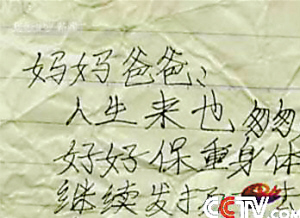 妈妈爸爸：
人生来也匆匆
好好保重身体
继续发扬 去
CCTV.com